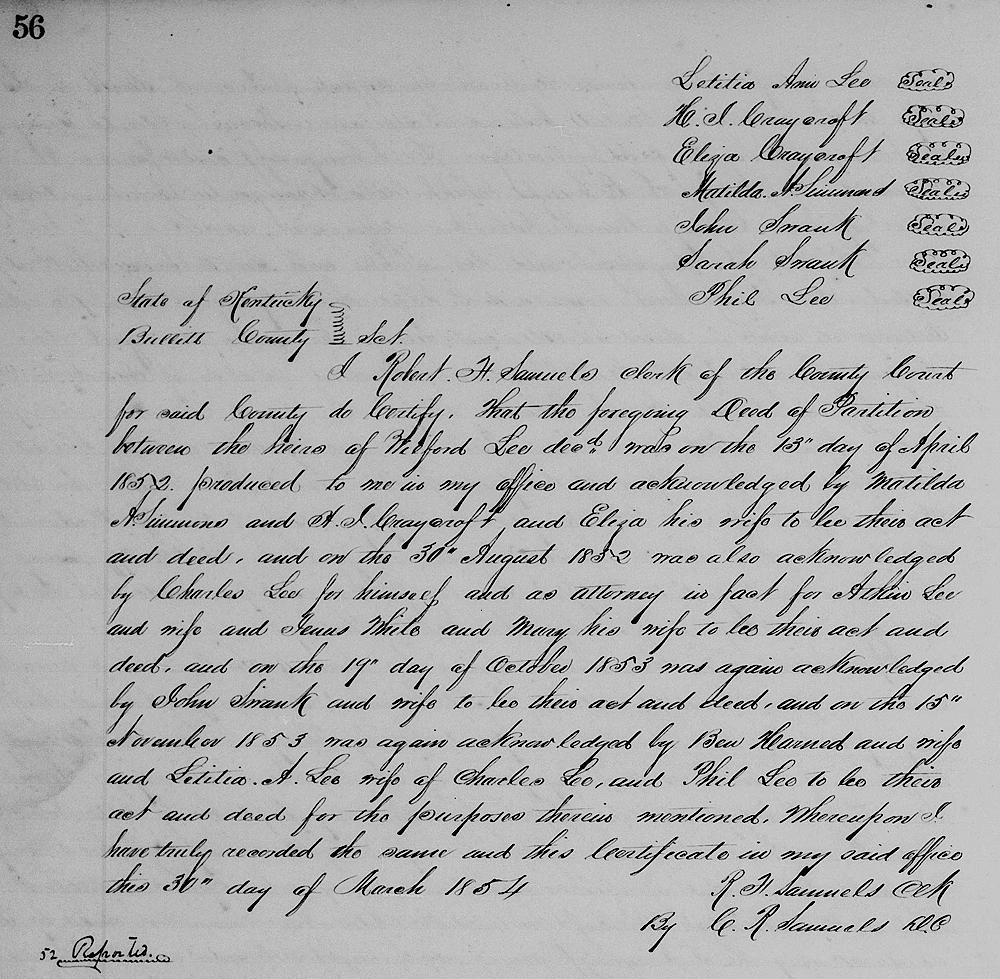 56
Letitia Ann Lee Seal
H. I. Craycroft Seal
Eliza Craycroft Seal
Matilda. A. Simmons Seal
John Swank Seal
Sarah Swank Seal
Phil Lee Seal
State of Kentucky
Bullitt County Sct.
I Robert. F. Samuels clerk of the County Court
for said County do Certify. That the foregoing Deed of Partition
between the heirs of Wilford Lee decd. was on the 13" day of April
1852. produced to me in my office and acknowledged by Matilda
A Simmons and H. I. Craycroft, and Eliza his wife to be their act
and deed, and on the 30" August 1852 was also acknowledged
by Charles Lee for himself and as attorney in fact for Atkin Lee
and wife and Jenus While and Mary his wife to be their act and
deed, and on the 19" day of October 1853 was again acknowledged
by John Swank and wife to be their act and deed, and on the 15"
November 1853 was again acknowledged by Ben Harned and wife
and Letitia. A. Lee wife of Charles Lee, and Phil Lee to be their
act and deed for the purposes therein mentioned. Whereupon I
have truly recorded the same and this Certificate in my said office
this 30" day of March 1854
R. F. Samuels Clk
By C. R. Samuels D.C
52 Reported.